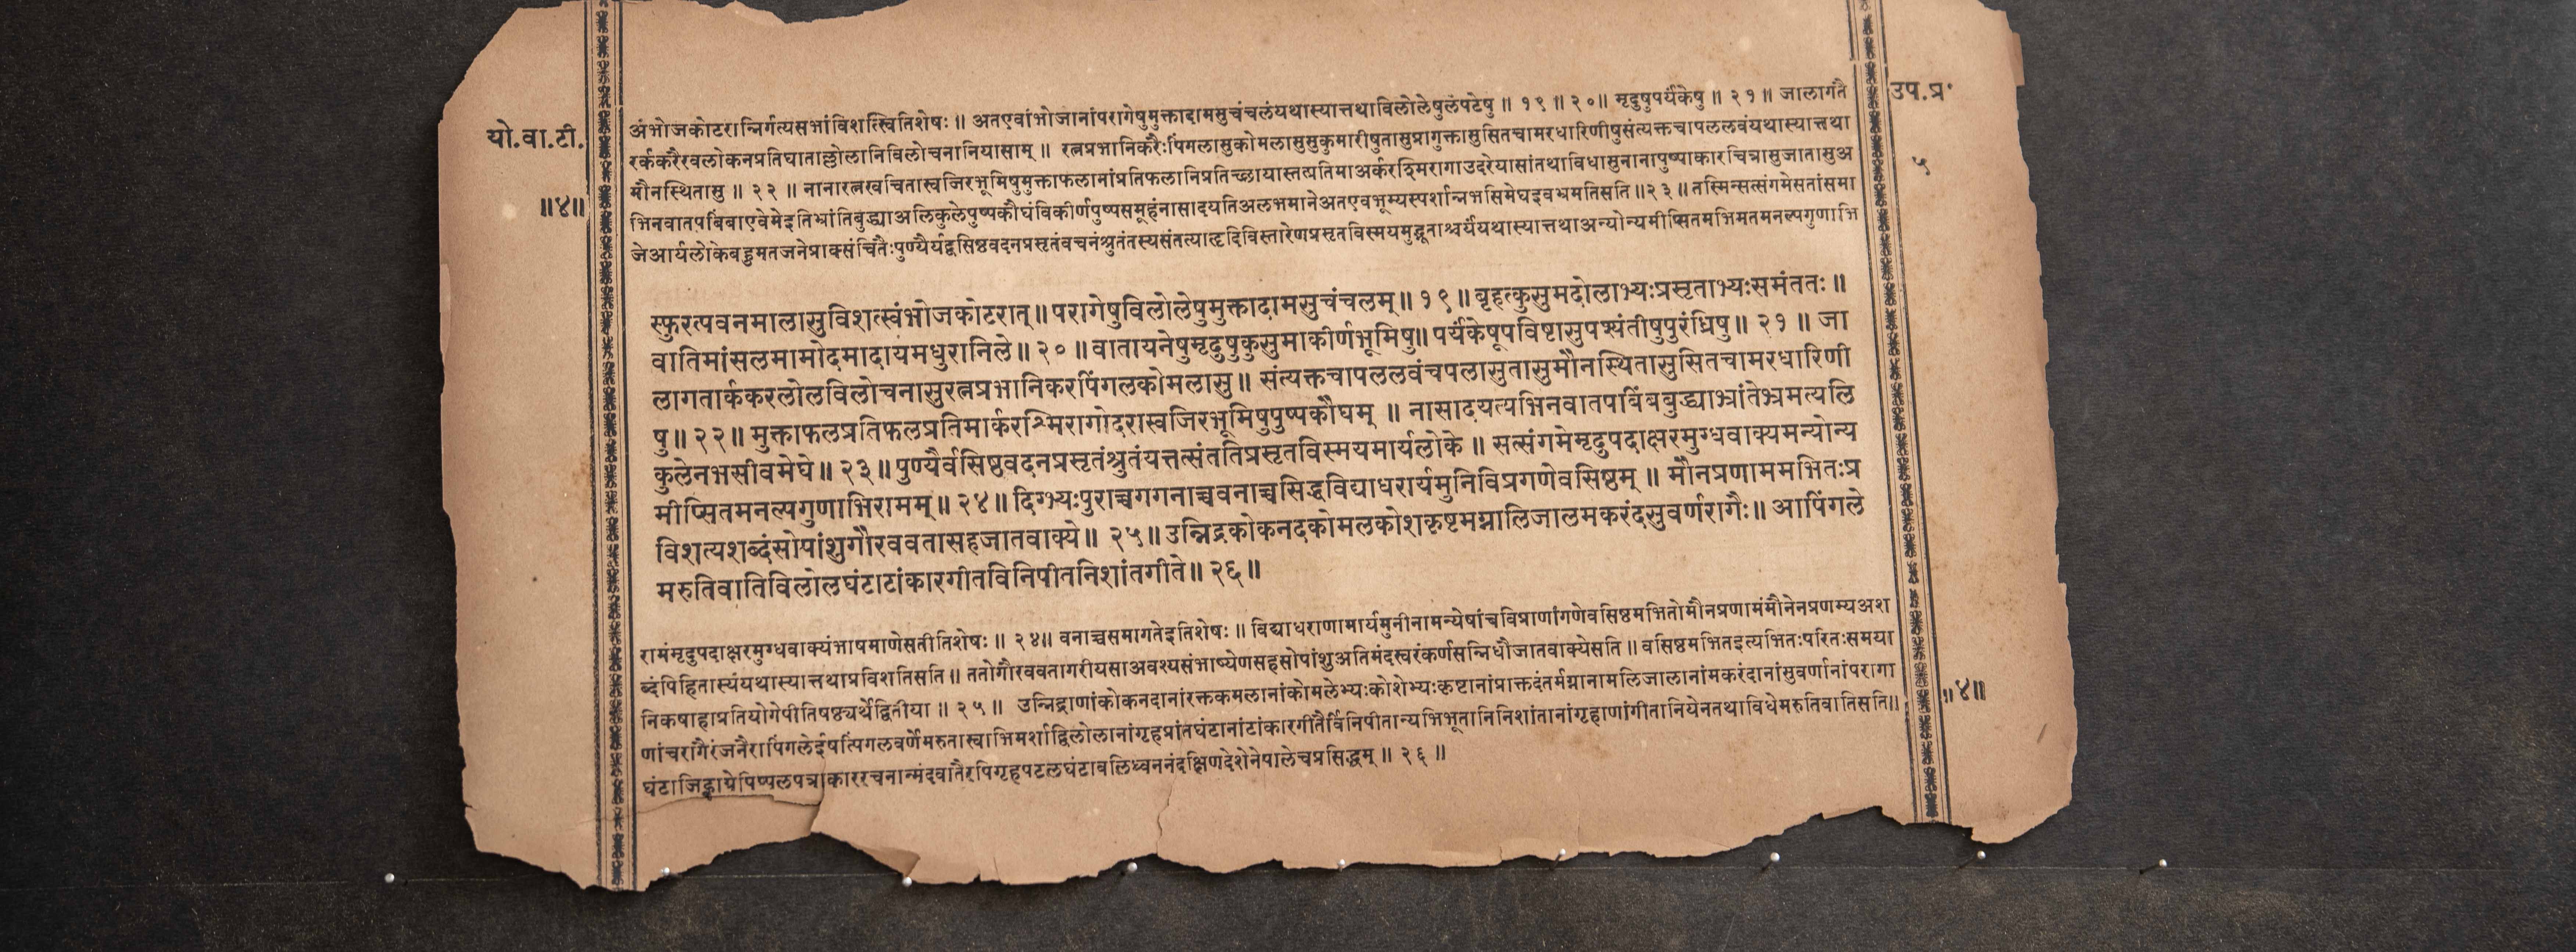 यो.वा.टी.
॥४॥
उप.प्र॰
५
अंभोजकोटरान्निर्गत्यसभांविशत्स्वितिशेषः ॥ अतएवांभोजानांपरागेषुमुक्तादामसुचंचलंयथास्यात्तथाविलोलेषुलंपटेषु ॥ १९ ॥ २० ॥ मृदुषुपर्यंकेषु ॥ २१ ॥ जालागतै
रर्ककरैरवलोकनप्रतिघाताल्लोलानिविलोचनानियासाम् ॥ रत्नप्रभानिकरैःपिंगलासुकोमलासुसुकुमारीषुतासुप्रागुक्तासुसितचामरधारिणीषुसंत्यक्तचापललवंयथास्यात्तथा
मौनस्थितासु ॥ २२ ॥ नानारत्नखचितास्वजिरभूमिषुमुक्ताफलानांप्रतिफलानिप्रतिच्छायास्तत्प्रतिमाअर्करश्मिरागाउदरेयासांतथाविधासुनानापुष्पाकारचित्रासुजातासुअ
भिनवातपबिंबाएवेमेइतिभ्रांतिबुद्ध्याअलिकुलेपुष्पकौघंविकीर्णपुष्पसमूहंनासादयतिअलभमानेअतएवभूम्यस्पर्शान्नभसिमेघइवभ्रमतिसति ॥२३॥ तस्मिन्सत्संगमेसतांसमा
जेआर्यलोकेबहुमतजनेप्राक्संचितैःपुण्यैर्यद्वसिष्ठवदनप्रसृतंवचनंश्रुतंतस्यसंतत्याहृदिविस्तारेणप्रसृतविस्मयमुद्भूताश्चर्यंयथास्यात्तथाअन्योन्यमीप्सितमभिमतमनल्पगुणाभि
स्फुरत्पवनमालासुविशत्स्वंभोजकोटरात् ॥ परागेषुविलोलेषुमुक्तादामसुचंचलम् ॥ १९ ॥ बृहत्कुसुमदोलाभ्यःप्रसृताभ्यःसमंततः ॥
वातिमांसलमामोदमादायमधुरानिले ॥ २० ॥ वातायनेषुमृदुषुकुसुमाकीर्णभूमिषु॥ पर्यंकेषूपविष्टासुपश्यंतीषुपुरंध्रिषु ॥ २१ ॥ जा
लागतार्ककरलोलविलोचनासुरत्नप्रभानिकरपिंगलकोमलासु ॥ संत्यक्तचापललवंचपलासुतासुमौनस्थितासुसितचामरधारिणी
षु ॥ २२ ॥ मुक्ताफलप्रतिफलप्रतिमार्करश्मिरागोदरास्वजिरभूमिषुपुष्पकौघम् ॥ नासादयत्यभिनवातपबिंबबुद्ध्याभ्रांतेभ्रमत्यलि
कुलेनभसीवमेघे ॥ २३ ॥ पुण्यैर्वसिष्ठवदनप्रसृतंश्रुतंयत्तत्संततिप्रसृतविस्मयमार्यलोके ॥ सत्संगमेमृदुपदाक्षरमुग्धवाक्यमन्योन्य
मीप्सितमनल्पगुणाभिरामम् ॥ २४ ॥ दिग्भ्यःपुराच्चगगनाच्चवनाच्चसिद्धविद्याधरार्यमुनिविप्रगणेवसिष्ठम् ॥ मौनप्रणाममभितःप्र
विशत्यशब्दंसोपांशुगौरववतासहजातवाक्ये ॥ २५ ॥ उन्निद्रकोकनदकोमलकोशकृष्टमग्नालिजालमकरंदसुवर्णरागैः ॥ आपिंगले
मरुतिवातिविलोलघंटाटांकारगीतविनिपीतनिशांतगीते ॥ २६ ॥
रामंमृदुपदाक्षरमुग्धवाक्यंभाषमाणेसतीतिशेषः ॥ २४॥ वनाच्चसमागतेइतिशेषः ॥ विद्याधराणामार्यमुनीनामन्येषांचविप्राणांगणेवसिष्ठमभितोमौनप्रणामंमौनेनप्रणम्यअश
ब्दंपिहितास्यंयथास्यात्तथाप्रविशतिसति ॥ ततोगौरववतागरीयसाअवश्यसंभाष्येणसहसोपांशुअतिमंदस्वरंकर्णसन्निधौजातवाक्येसति ॥ वसिष्ठमभितइत्यभितःपरितःसमया
निकषाहाप्रतियोगेपीतिषष्ठ्यर्थेद्वितीया ॥ २५ ॥ उन्निद्राणांकोकनदानांरक्तकमलानांकोमलेभ्यःकोशेभ्यःकृष्टानांप्राक्तदंतर्मग्नानामलिजालानांमकरंदानांसुवर्णानांपरागा
णांचरागैरंजनैरापिंगलेईषत्पिंगलवर्णेमरुतास्वाभिमर्शाद्विलोलानांगृहप्रांतघंटानांटांकारगीतैर्विनिपीतान्यभिभूतानिनिशांतानांगृहाणांगीतानियेनतथाविधेमरुतिवातिसति॥
घंटाजिह्वाग्रेपिप्पलपत्राकाररचनान्मंदवातैरपिगृहपटलघंटावलिध्वननंदक्षिणदेशेनेपालेचप्रसिद्धम् ॥ २६ ॥
॥४॥